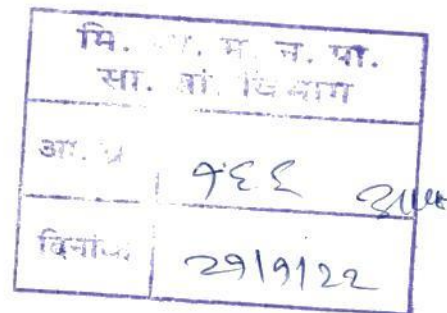 मि. म. न. पा.
सा. बां. विभाग
आ. १६६
दिनांक २१/१/२२